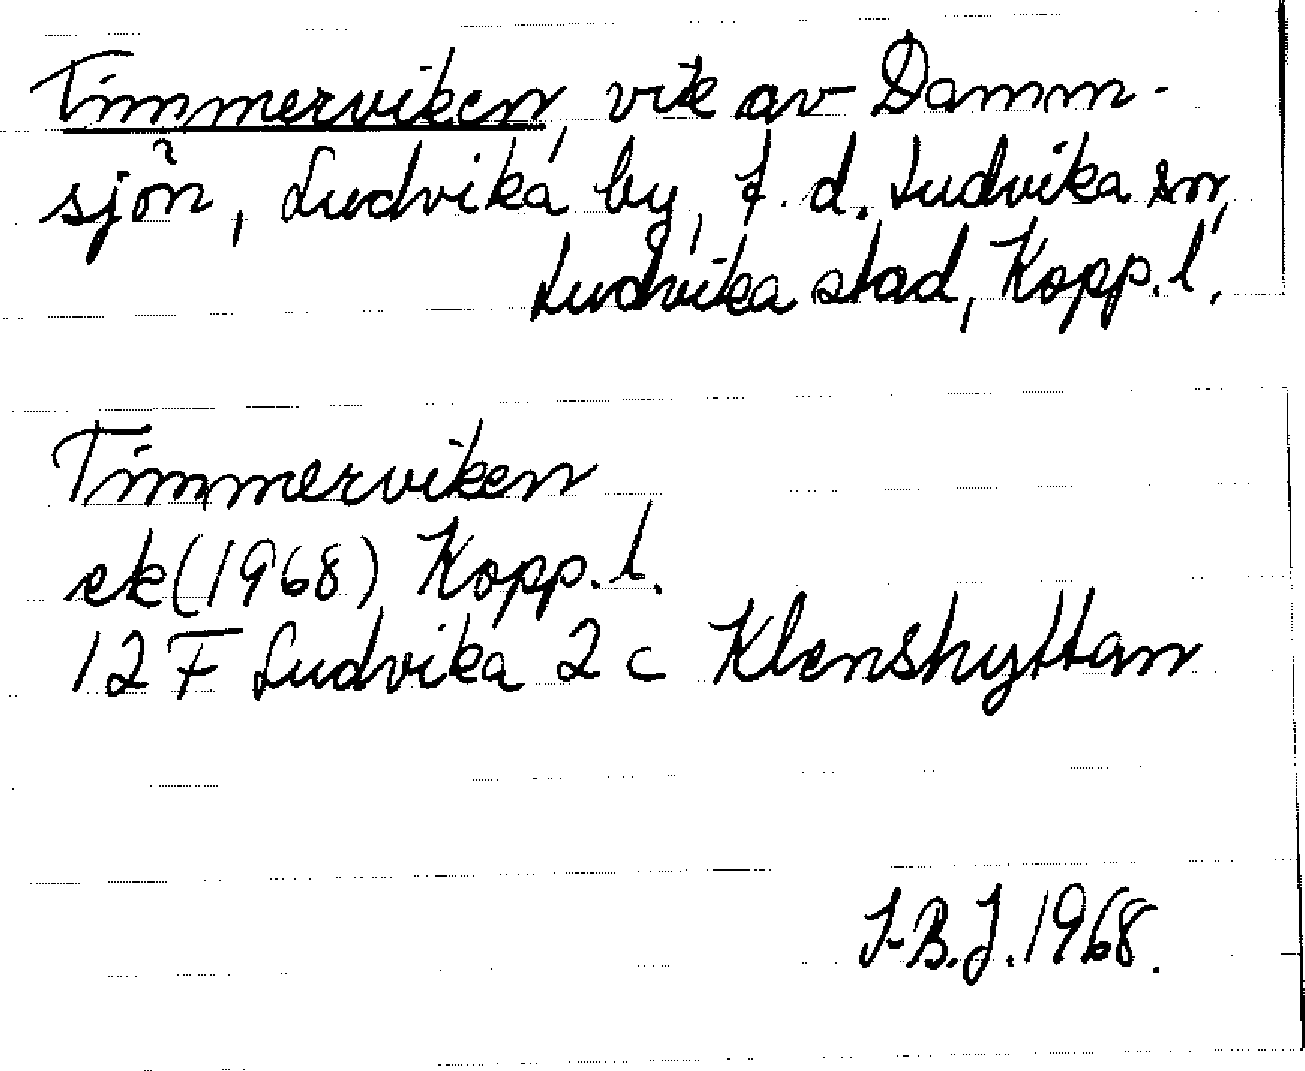 Timmerviken, vik av Damm-
sjön, Ludvika by, f.d. Ludvika sn,
Ludvika stad, Kopp.l.
Timmerviken
ek (1968) Kopp.l.
12 F Ludvika 2 c Klenshyttan
I-B.J. 1968.